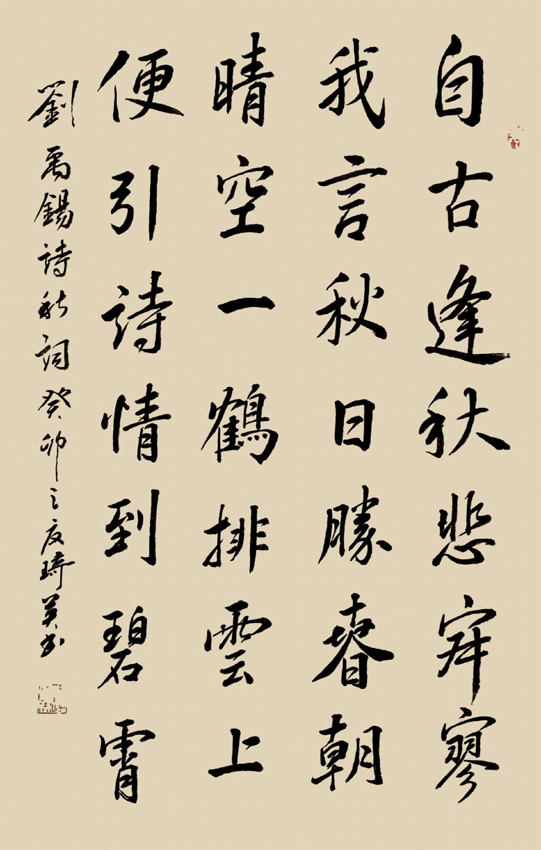 自古逢秋悲寂寥
我言秋日勝春朝
晴空一鶴排雲上
便引詩情到碧霄
劉禹錫詩秋詞癸卯之夏琦英書